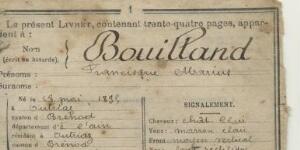 1
Le présent Livret, contenant trente-quatre pages, appar-
tient à :
Nom
(écrit en bâtarde).
Bouilland
Prénoms : Francisque Marius
Surnoms :
Né le 18 mai 189
à Outriaz
canton d Brénod
département d e l'ain
résidant à Outriaz
canton d Brénod
SIGNALEMENT.
Cheveux : chât clair
Yeux : marron clair
Front : moyen vertical